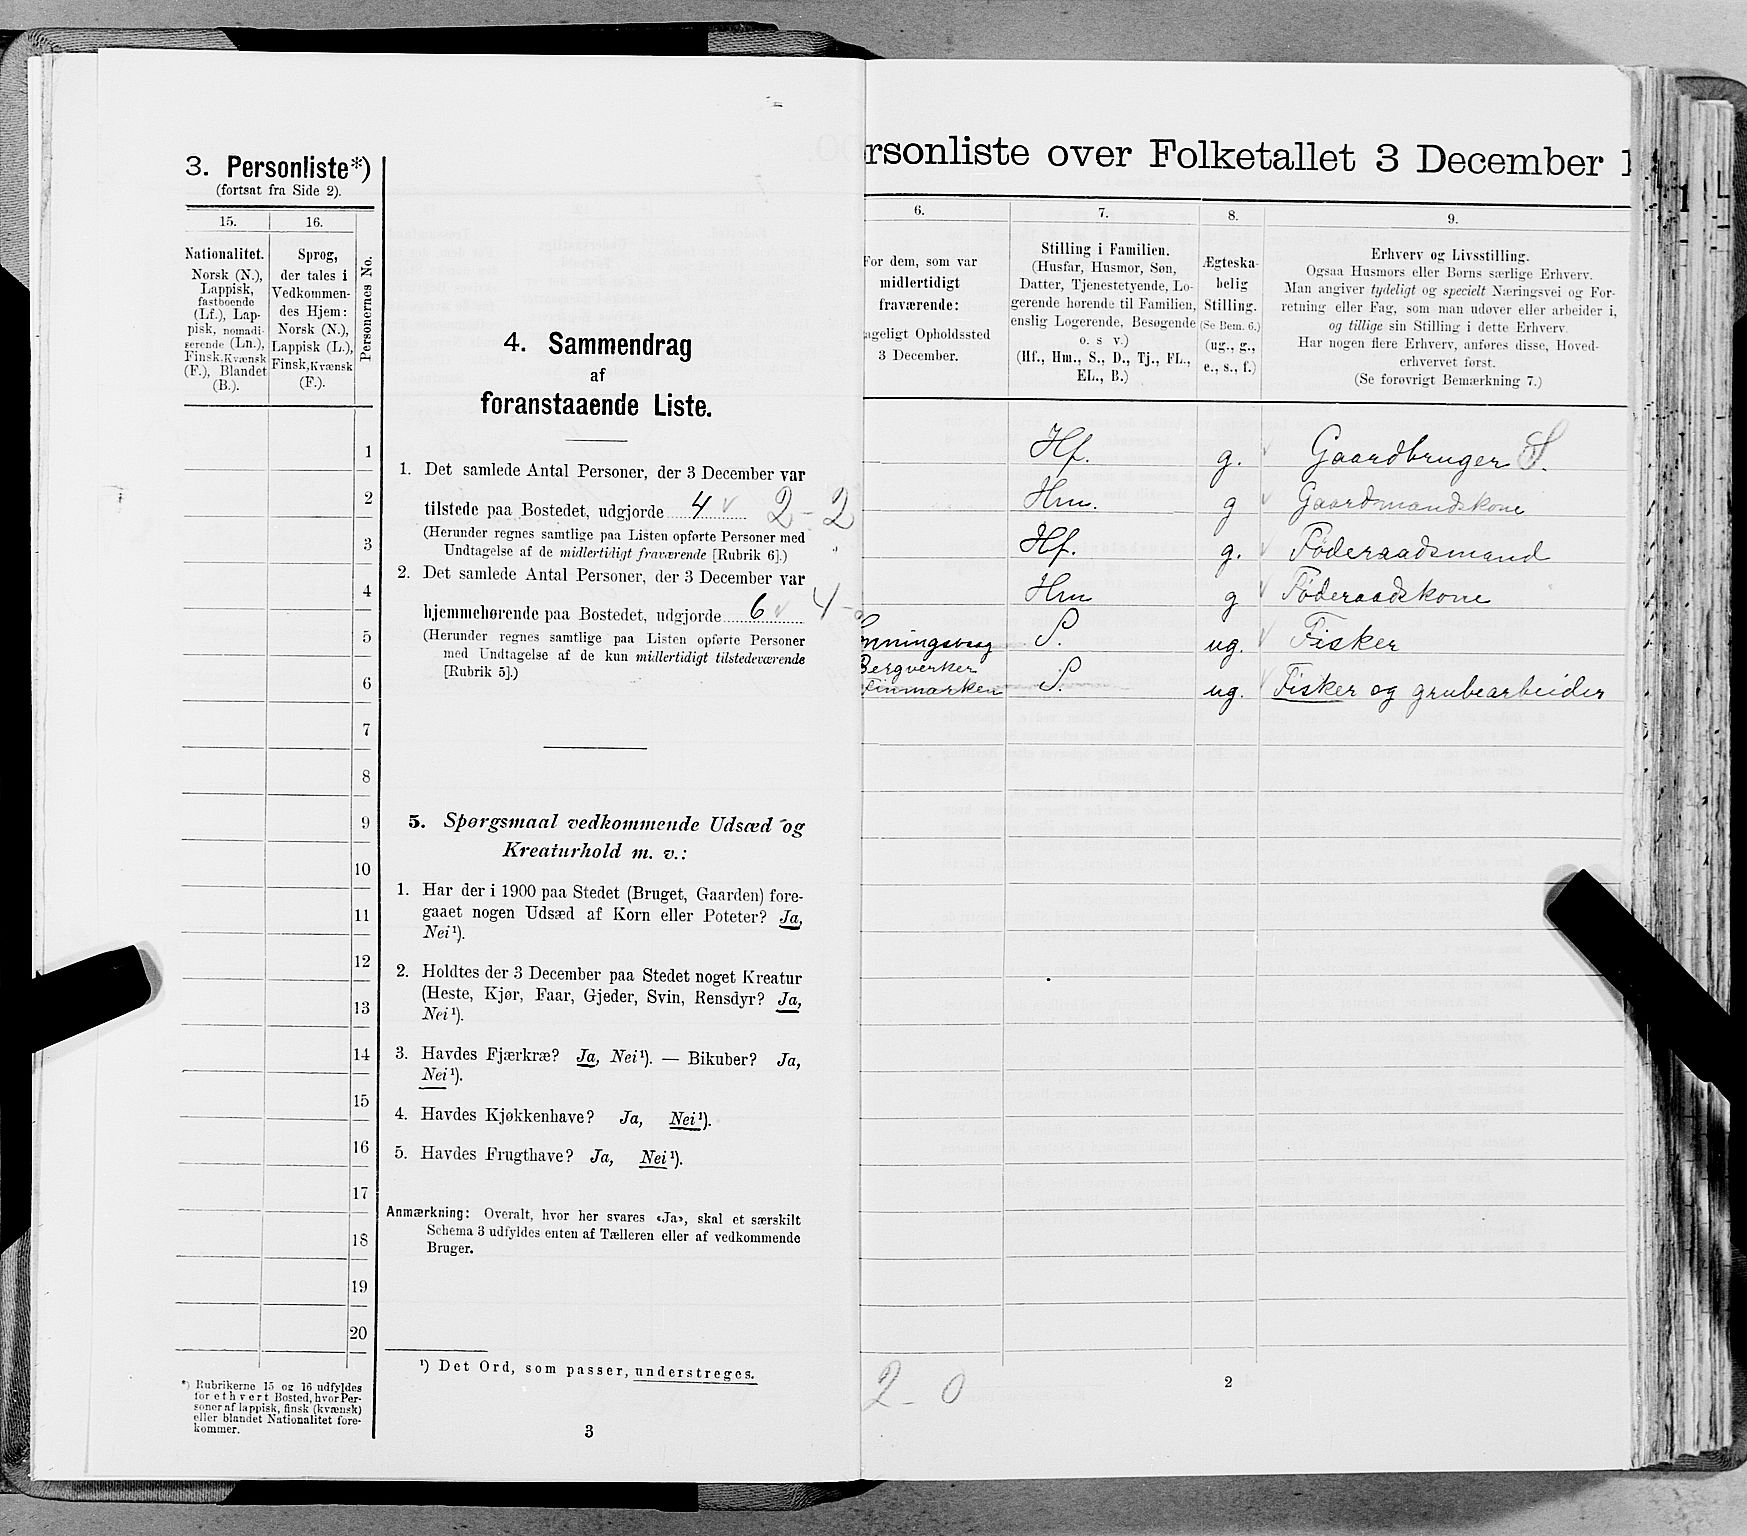 3. Personliste*)
(fortsat fra Side 2).
15.
16.
Nationalitet.
Norsk (N.),
Lappisk,
fastboende
(Lf.), Lap-
pisk, nomadi-
serende (Ln.),
Finsk, Kvænsk
(F.), Blandet
(B.).
Sprog,
der tales i
Vedkommen-
des Hjem:
Norsk (N.),
Lappisk (L.),
Finsk, Kvænsk
(F.).
Personernes No.
1
2
3
4
5
6
7
8
9
10
11
12
13
14
15
16
17
18
19
20
*) Rubrikerne 15 og 16 udfyldes
for ethvert Bosted, hvor Per-
soner af lappisk, finsk (kvænsk)
eller blandet Nationalitet fore-
kommer.
4. Sammendrag
af
foranstaaende Liste.
1. Det samlede Antal Personer, der 3 December var
tilstede paa Bostedet, udgjorde 4 2 - 2
(Herunder regnes samtlige paa Listen opførte Personer med
Undtagelse af de midlertidigt fraværende [Rubrik 6].)
2. Det samlede Antal Personer, der 3 December var
hjemmehørende paa Bostedet, udgjorde 6 4 -
(Herunder regnes samtlige paa Listen opførte Personer
med Undtagelse af de kun midlertidigt tilstedeværende
[Rubrik 5].)
5. Spørgsmaal vedkommende Udsæd og
Kreaturhold m. v.:
1. Har der i 1900 paa Stedet (Bruget, Gaarden) fore-
gaaet nogen Udsæd af Korn eller Poteter? Ja,
Nei¹).
2. Holdtes der 3 December paa Stedet noget Kreatur
(Heste, Kjør, Faar, Gjeder, Svin, Rensdyr? Ja,
Nei¹).
3. Havdes Fjærkræ? Ja, Nei¹). — Bikuber? Ja,
Nei¹).
4. Havdes Kjøkkenhave? Ja, Nei¹).
5. Havdes Frugthave? Ja, Nei¹).
Anmærkning: Overalt, hvor her svares «Ja», skal et særskilt
Schema 3 udfyldes enten af Tælleren eller af vedkommende
Bruger.
¹) Det Ord, som passer, understreges.
3
rsonliste over Folketallet 3 December 1
6.
7.
8.
9.
For dem, som var
midlertidigt
fraværende:
ageligt Opholdssted
3 December.
Stilling i Familien.
(Husfar, Husmor, Søn,
Datter, Tjenestetyende, Lo-
gerende hørende til Familien,
enslig Logerende, Besøgende
o. s v.)
(Hf., Hm., S., D., Tj., FL.,
EL., B.)
Ægteska-
belig
Stilling.
(Se Bem. 6.)
(ug., g.,
e., s., f.)
Erhverv og Livsstilling.
Ogsaa Husmors eller Børns særlige Erhverv.
Man angiver tydeligt og specielt Næringsvei og For-
retning eller Fag, som man udøver eller arbeider i,
og tillige sin Stilling i dette Erhverv.
Har nogen flere Erhverv, anføres disse, Hoved-
erhvervet først.
(Se forøvrigt Bemærkning 7.)
Hf. g. Gaardbruger S.
Hm. g Gaardmandskone
Hf. g. Føderaadsmand
Hm g Føderaadskone
nningsvaag S. ug. Fisker
Bergverker
Finmarken S. ug. Fisker og grubearbeider
2 0
2